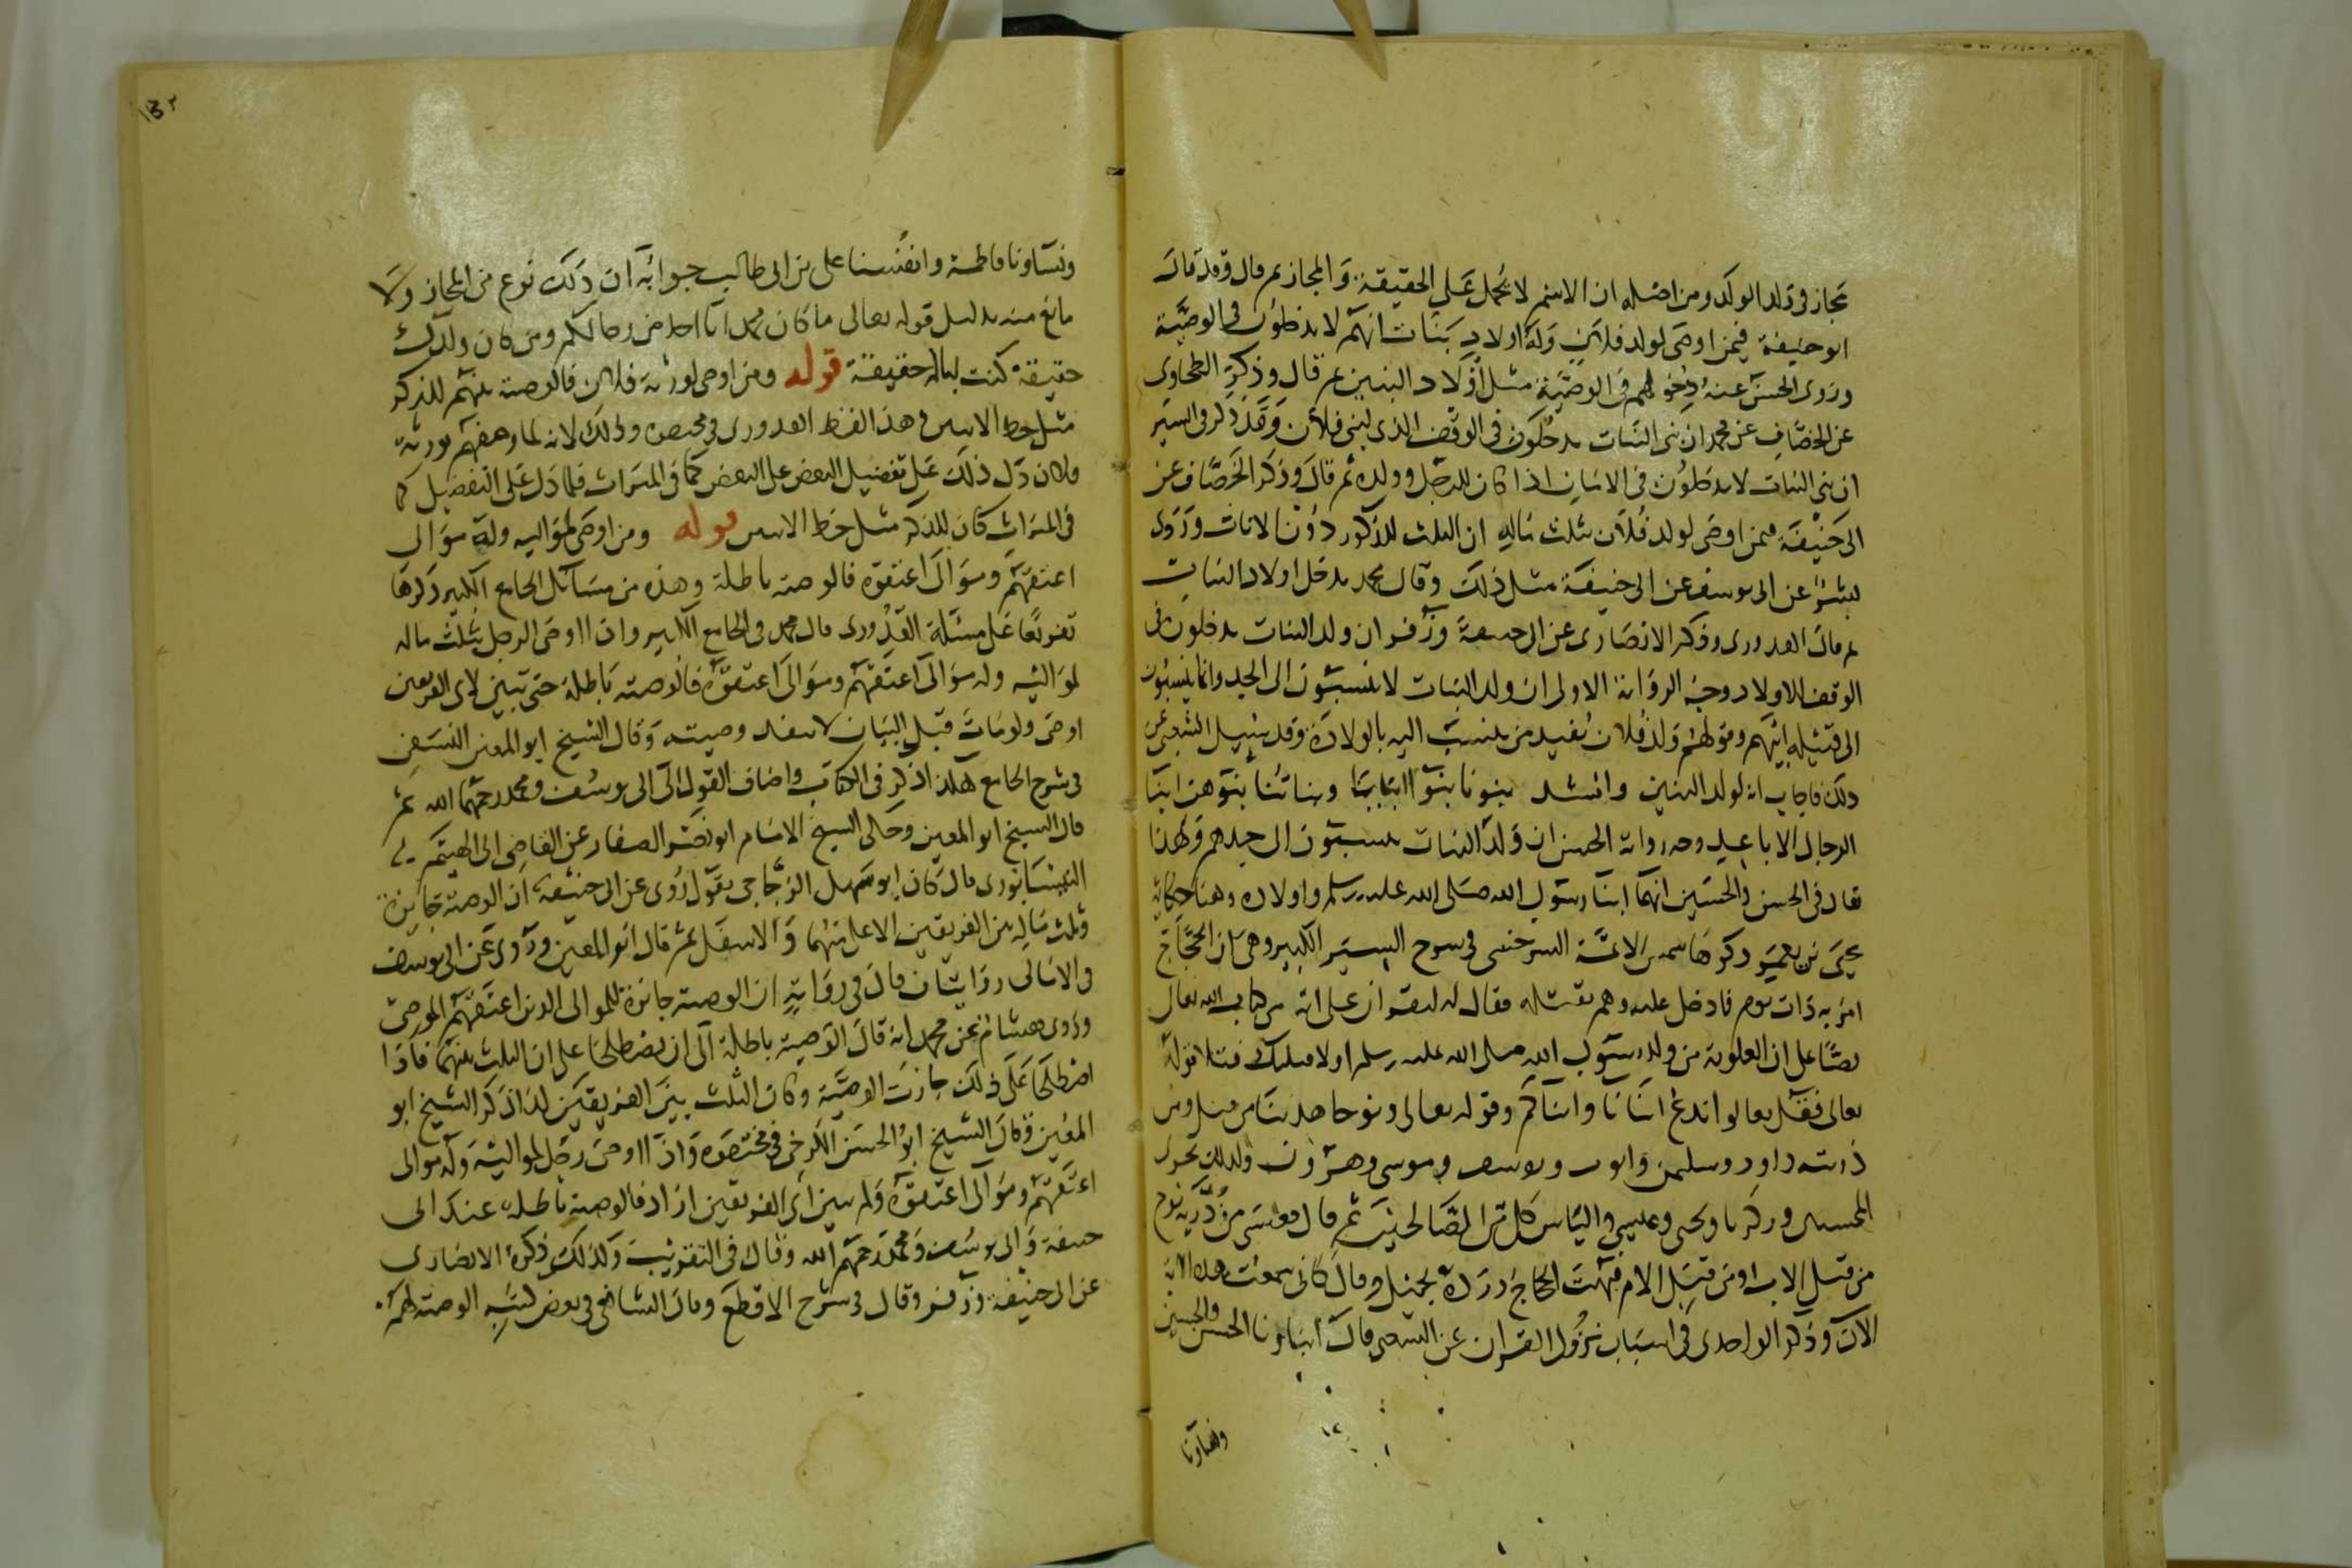 مجاز في ولد الولد ومن اصله ان الاسم لا يحمل على الحقيقة والمجاز ثم قال وقد قال
ابو حنيفة فيمن اوصى لولد فلان وله اولاد بنات انهم لا يدخلون في الوصية
وروى الحسن عنه دخولهم في الوصية مثل اولاد البنين ثم قال وذكر الطحاوى
عن الخصاف عن محمد ان بني البنات يدخلون في الوقف الذي لبني فلان وقد ذكر في السير
ان بني البنات لا يدخلون في الامان اذا كان للرجل وولده ثم قال وذكر الخصاف عن
ابى حنيفة فيمن اوصى لولد فلان بثلث ماله ان الثلث للذكور دون الاناث وروى
بشر عن ابى يوسف عن ابى حنيفة مثل ذلك وقال محمد يدخل اولاد البنات
ثم قال القدورى وذكر الانصارى عن ابى حنيفة وزفر ان ولد البنات يدخلون في
الوقف للاولاد وجه الرواية الاولى ان ولد البنات لا ينسبون الى الجد وانما ينسبون
الى قبيلة ابيهم وقولهم ولد فلان يفيد من ينسب اليه بالولادة وقد سئل الشعبي عن
ذلك فاجاب انه لولد البنين وانشد بنونا بنو ابنائنا وبناتنا بنوهن ابنا
الرجال الاباعد وجه رواية الحسن ان ولد البنات ينسبون الى جدهم ولهذا
يقال في الحسن والحسين انهما ابنا رسول الله صلى الله عليه وسلم واولاده وهنا حكاية
يحيى بن يعمر ذكرها شمس الائمة السرخسى في شرح السير الكبير وهى ان الحجاج
امر به ذات يوم فادخل عليه وهم بقتله فقال له لتقران على اية من كتاب الله تعالى
نصا على ان العلوية من ولد رسول الله صلى الله عليه وسلم او لاقتلنك فتلا قوله
تعالى فقل تعالوا ندع ابنانا وابناكم وقوله تعالى ونوحا هدينا من قبل ومن
ذريته داود وسليمن وايوب ويوسف وموسى وهرون وكذلك نجزى
المحسنين وزكريا ويحيى وعيسى والياس كل من الصالحين ثم قال فعيسى من ذرية نوح
من قبل الاب او من قبل الام فبهت الحجاج ورده بجميل وقال كانى سمعت هذه الاية
الآن وذكر الواحدى في اسباب نزول القران عن الشعبى قال ابناونا الحسن والحسين
ونساونا
ونساونا فاطمة وانفسنا على بن ابى طالب جوابه ان ذلك نوع من المجاز ولا
مانع منه بدليل قوله تعالى ما كان محمد ابا احد من رجالكم ومن كان ولدك
حقيقة كنت اباله حقيقة قوله ومن اوصى لورثة فلان فالوصية بينهم للذكر
مثل حظ الانثيين هذا لفظ القدورى في مختصره وذلك لانه لما وصفهم بورثة
فلان دل ذلك على تفضيل البعض على البعض كما في الميراث فلما دل على التفضيل كما
في الميراث كان للذكر مثل حظ الانثيين قوله ومن اوصى لمواليه وله موالى
اعتقهم وموالى اعتقوه فالوصية باطلة وهذه من مسائل الجامع الكبير ذكرها
تفريعا على مسئلة القدورى قال محمد في الجامع الكبير واذا اوصى الرجل بثلث ماله
لمواليه وله موالى اعتقهم وموالى اعتقوه فالوصية باطلة حتى تبين لاى الفريقين
اوصى ولو مات قبل البيان لا تنفذ وصيته وقال الشيخ ابو المعين النسفى
في شرح الجامع هكذا ذكر في الكتاب واضاف القول الى ابى يوسف ومحمد رحمهما الله ثم
قال الشيخ ابو المعين وحكى الشيخ الامام ابو نصر الصفار عن القاضى ابى الهيثم
النيسابورى قال كان ابو سهل الزجاجى يقول روى عن ابى حنيفة ان الوصية جائزة
وثلث ماله بين الفريقين الاعلى منهما والاسفل ثم قال ابو المعين وروى عن ابى يوسف
في الامالى روايتان قال في رواية ان الوصية جائزة للموالى الذين اعتقهم الموصى
وروى هشام عن محمد انه قال الوصية باطلة الى ان يصطلحا على ان الثلث بينهما فاذا
اصطلحا على ذلك جازت الوصية وكان الثلث بين الفريقين كذا ذكر الشيخ ابو
المعين وقال الشيخ ابو الحسن الكرخى في مختصره واذا اوصى رجل لمواليه وله موالى
اعتقهم وموالى اعتقوه ولم يبين اى الفريقين اراد فالوصية باطلة عند ابى
حنيفة وابى يوسف ومحمد رحمهم الله وقال في التقريب وكذلك ذكره الانصارى
عن ابى حنيفة وزفر وقال في شرح الاقطع وقال الشافعى في بعض كتبه الوصية لهم